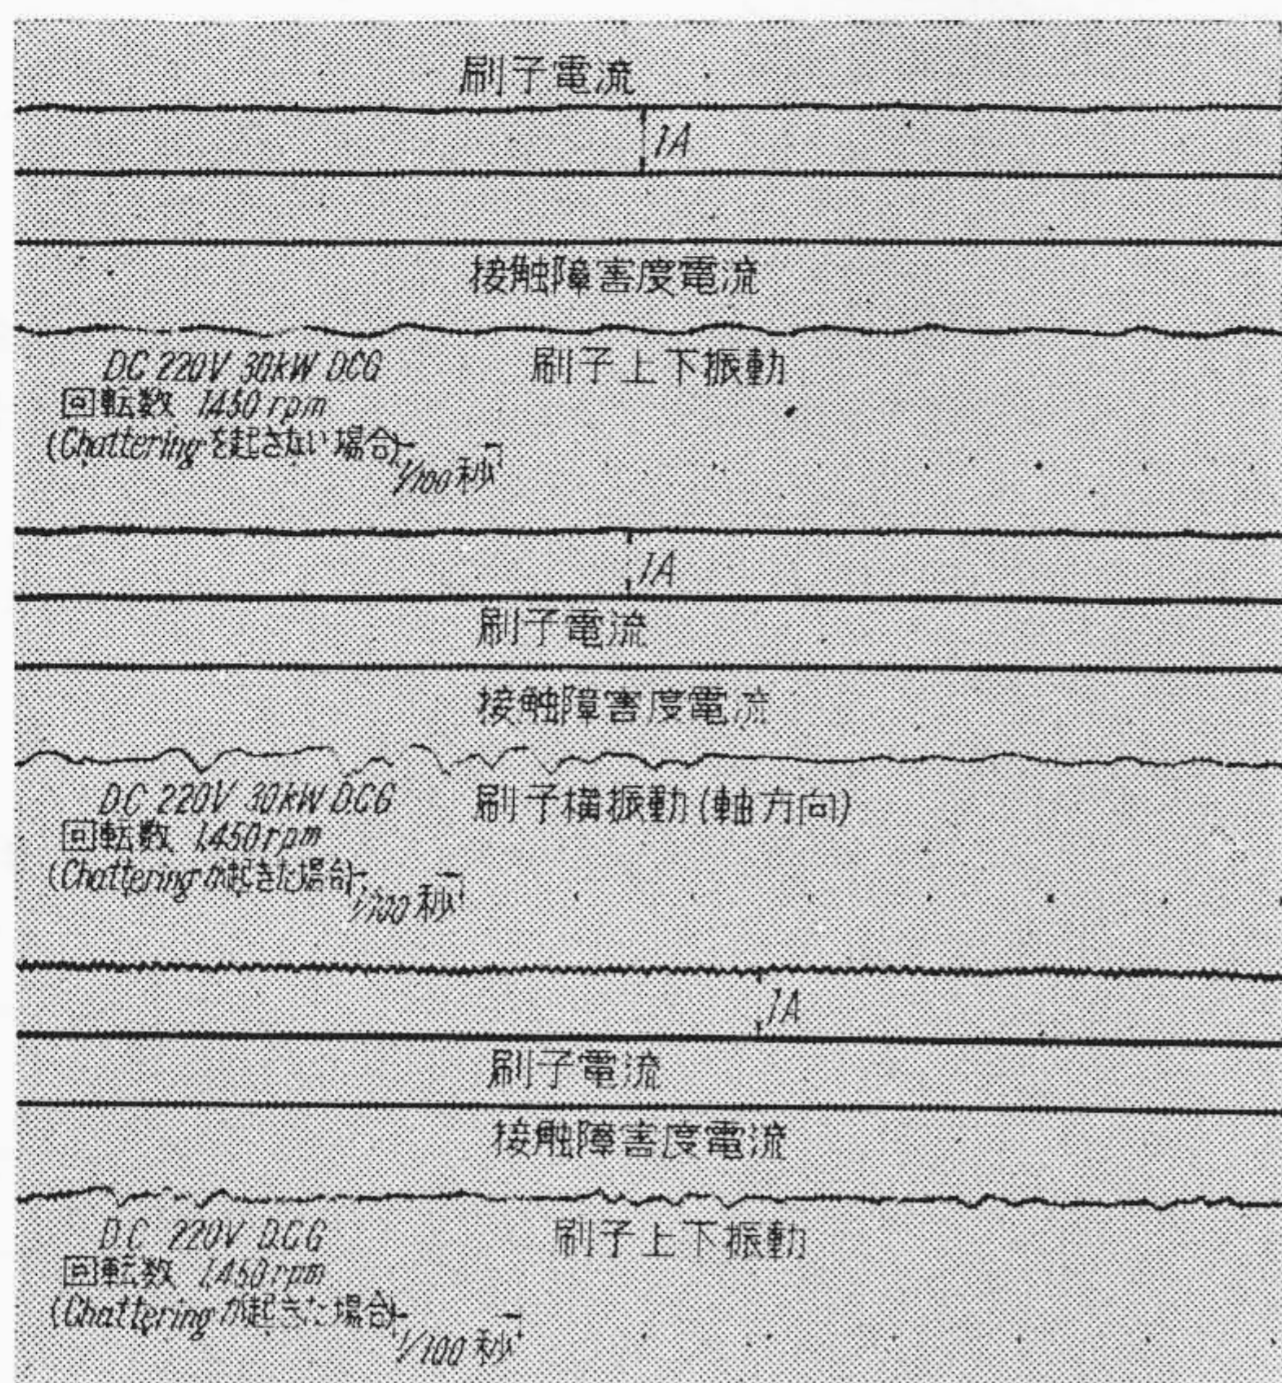 刷子電流
1A
接触障害度電流
刷子上下振動
DC 220V 30kW DCG
回転数 1,450 rpm
(Chatteringを起さない場合)
1/100秒
1A
刷子電流
接触障害度電流
刷子横振動(軸方向)
D.C 220V 30kW D.C.G
回転数 1,450rpm
(Chatteringが起きた場合)
1/100秒
1A
刷子電流
接触障害度電流
刷子上下振動
D.C 220V D.C.G
回転数 1,450rpm
(Chatteringが起きた場合)
1/100秒